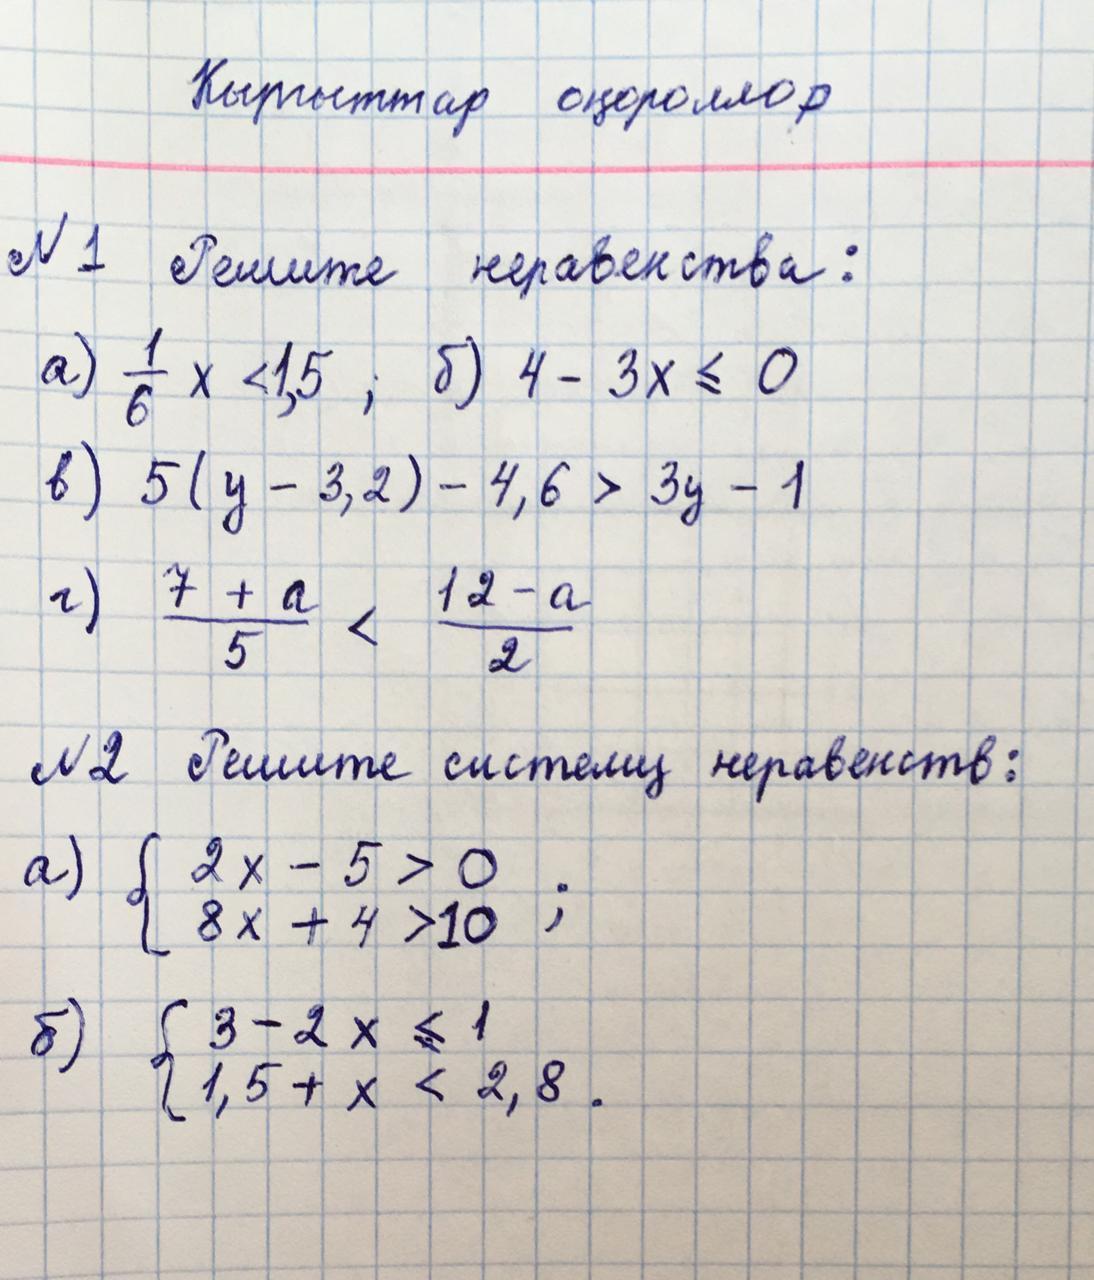 Кыргыттар оңороллор
№1 Решите неравенства:
а) 1/6 x < 1,5 ; б) 4 - 3x ≤ 0
в) 5(y - 3,2) - 4,6 > 3y - 1
г) (7 + a)/5 < (12 - a)/2
№2 Решите систему неравенств:
а) { 2x - 5 > 0
8x + 4 > 10 ;
б) { 3 - 2x ≤ 1
1,5 + x < 2,8 .